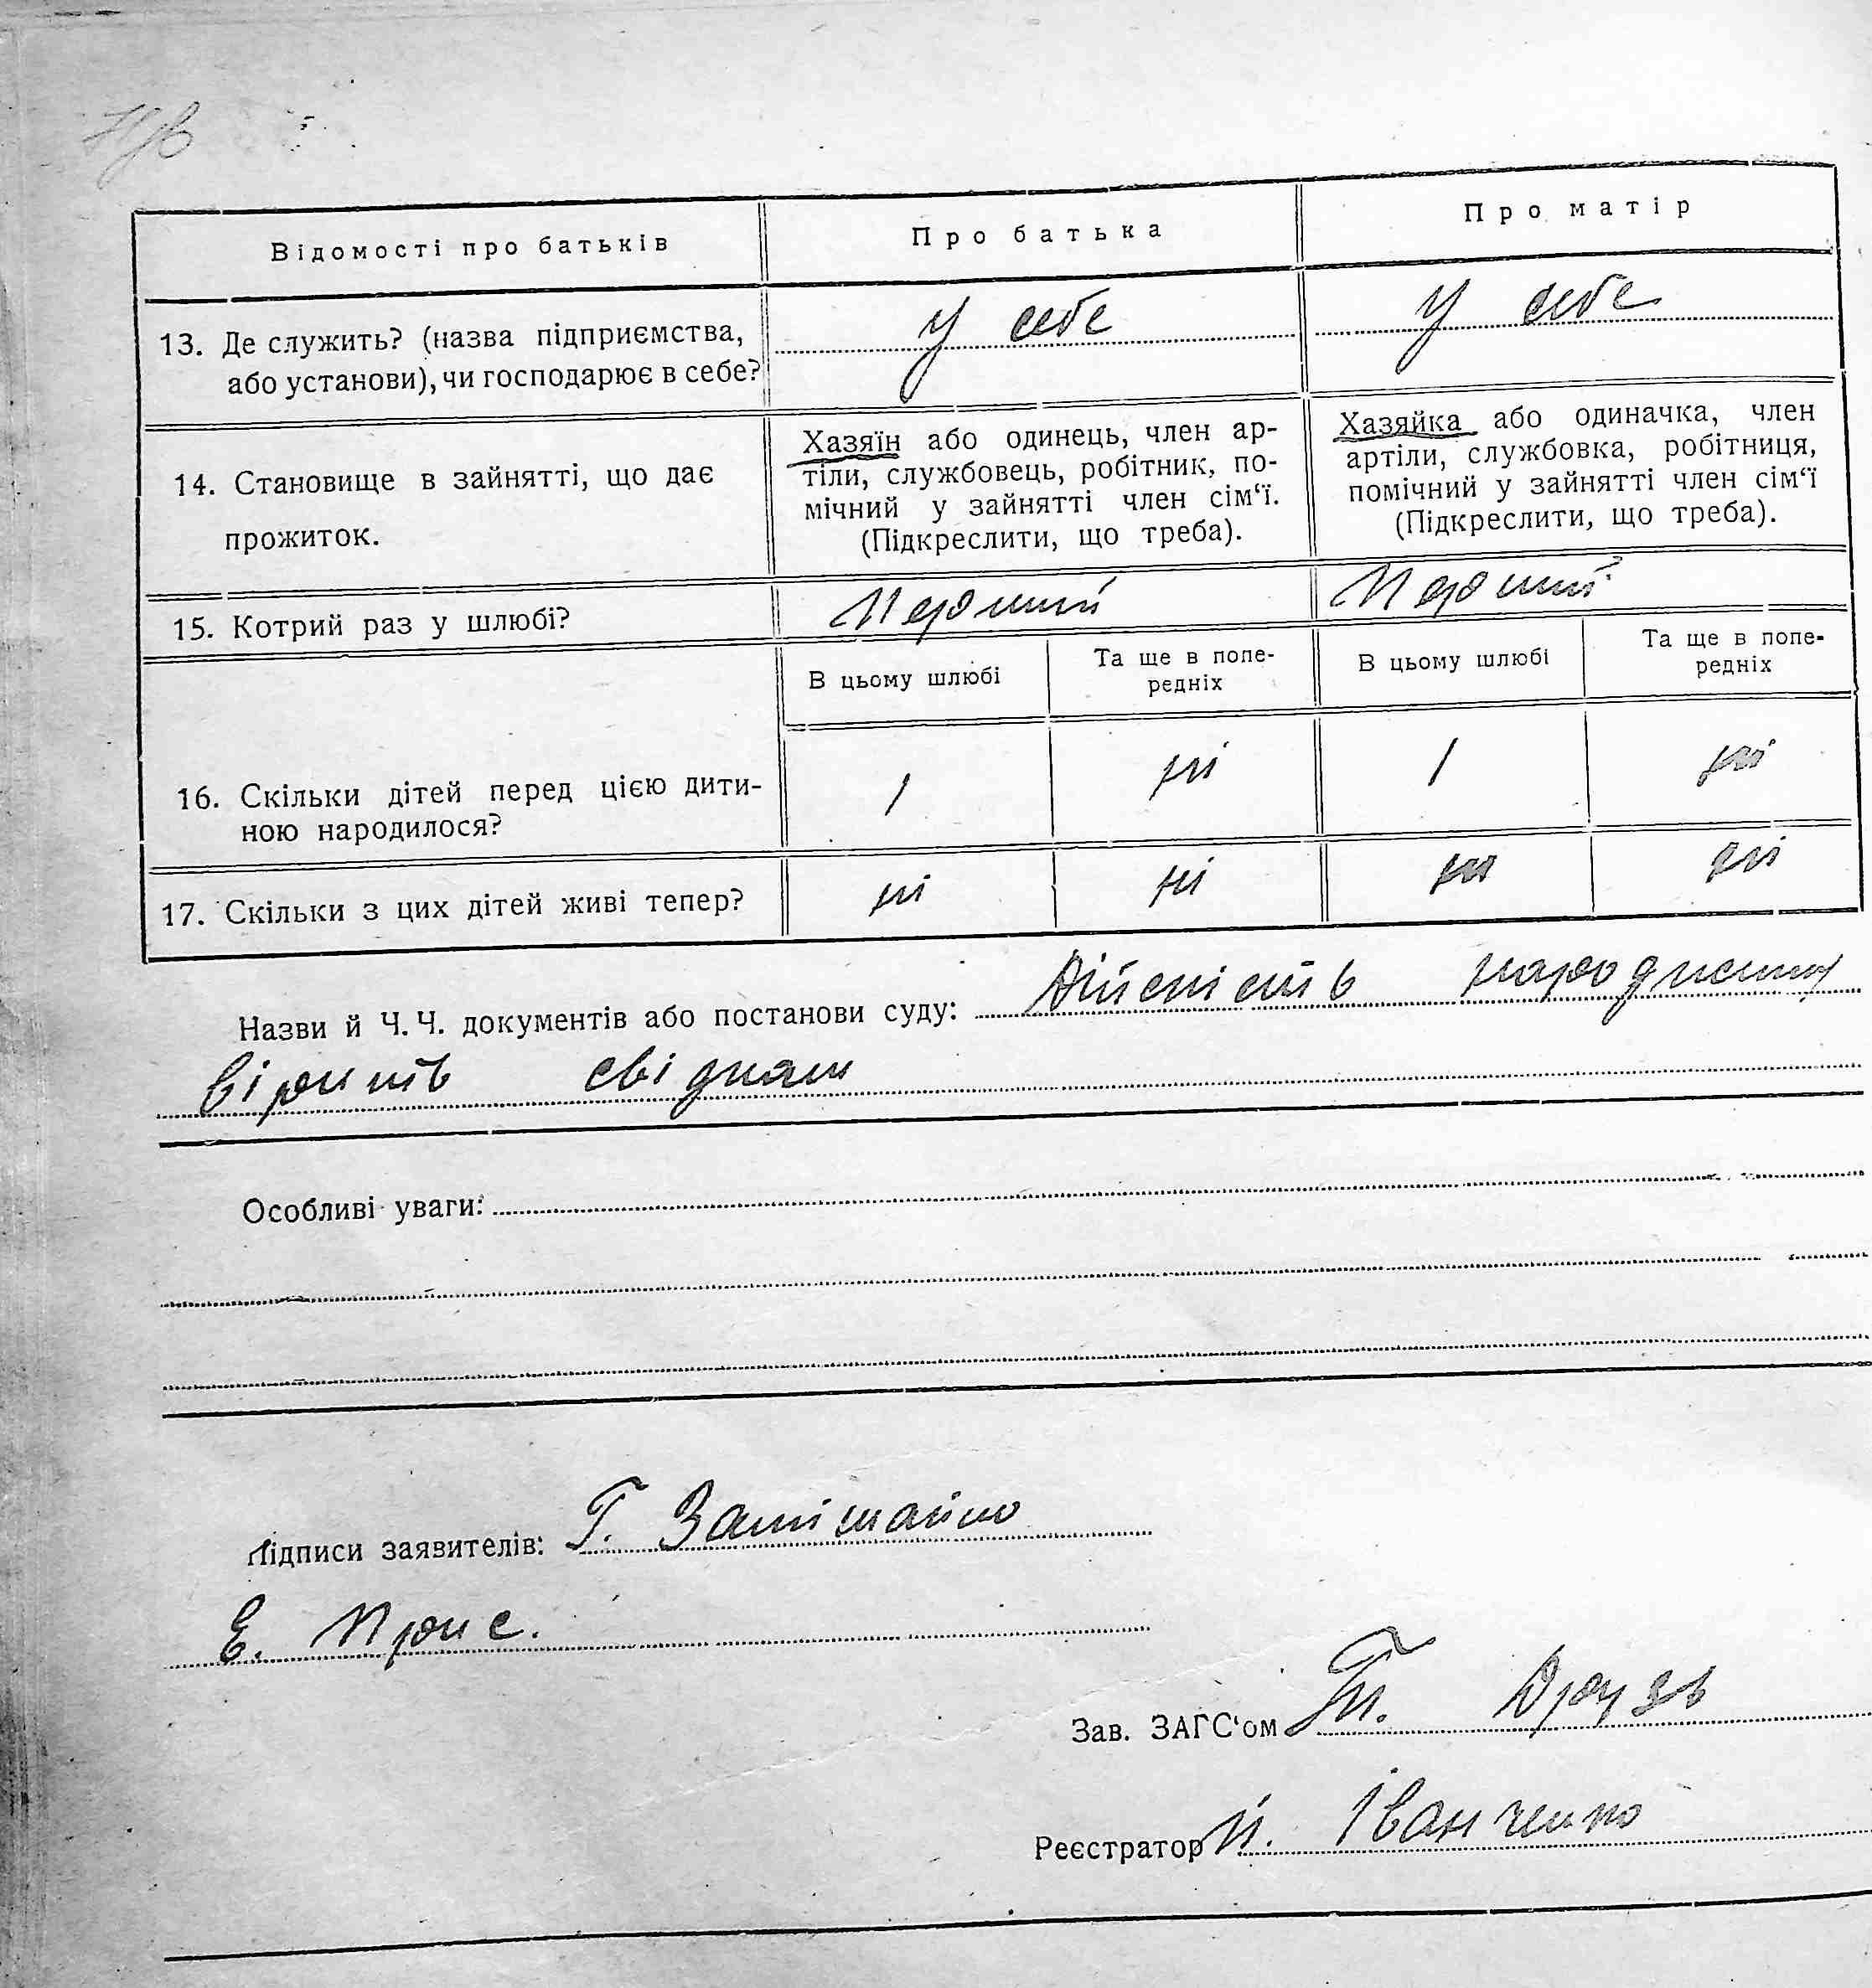 Відомості про батьків
Про батька
Про матір
13. Де служить? (назва підприємства,
або установи), чи господарює в себе?
у себе
у себе
14. Становище в зайнятті, що дає
прожиток.
Хазяїн або одинець, член ар-
тіли, службовець, робітник, по-
мічний у зайнятті член сім‘ї.
(Підкреслити, що треба).
Хазяйка або одиначка, член
артіли, службовка, робітниця,
помічний у зайнятті член сім‘ї
(Підкреслити, що треба).
15. Котрий раз у шлюбі?
Перший
Перший
В цьому шлюбі
Та ще в попе-
редніх
В цьому шлюбі
Та ще в попе-
редніх
16. Скільки дітей перед цією дити-
ною народилося?
1
ні
1
ні
17. Скільки з цих дітей живі тепер?
ні
ні
ні
ні
Назви й Ч.Ч. документів або постанови суду: Дійсність
вірить свідкам
Особливі уваги:
Підписи заявителів: Г.
Е. Прис.
Зав. ЗАГС‘ом Друзь
Реєстратор Іванченко